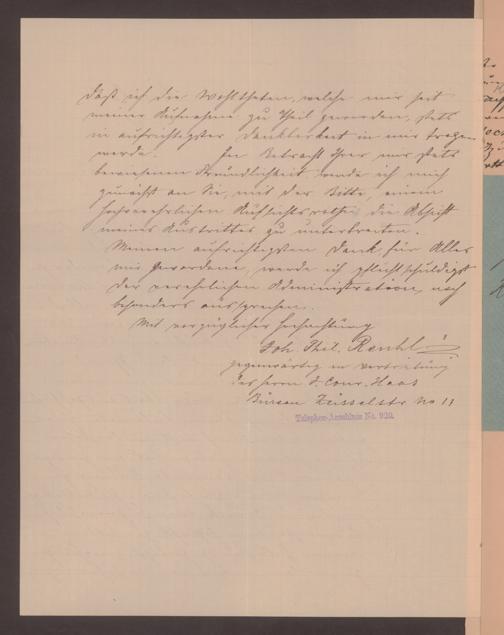 daß ich die Wohlthaten, welche mir seit
meiner Aufnahme zu Theil geworden, stets
in aufrichtigster Dankbarkeit in mir tragen
werde. In Betracht Ihrer mir stets
bewiesenen Freundlichkeit wende ich mich
zunächst an Sie, mit der Bitte, einem
hochverehrlichen Aufsichtsrathe, die Absicht
meines Austrittes zu unterbreiten.
Meinen aufrichtigsten Dank für Alles
mir Gewordene, werde ich pflichtschuldigst
der verehrlichen Administration, noch
besonders aussprechen.
Mit vorzüglicher Hochachtung
Joh. Phil.
gegenwärtig in Vertretung
des Herrn J. Conr. Haas
Bureau No 11
Telephon-Anschluss No. 920.